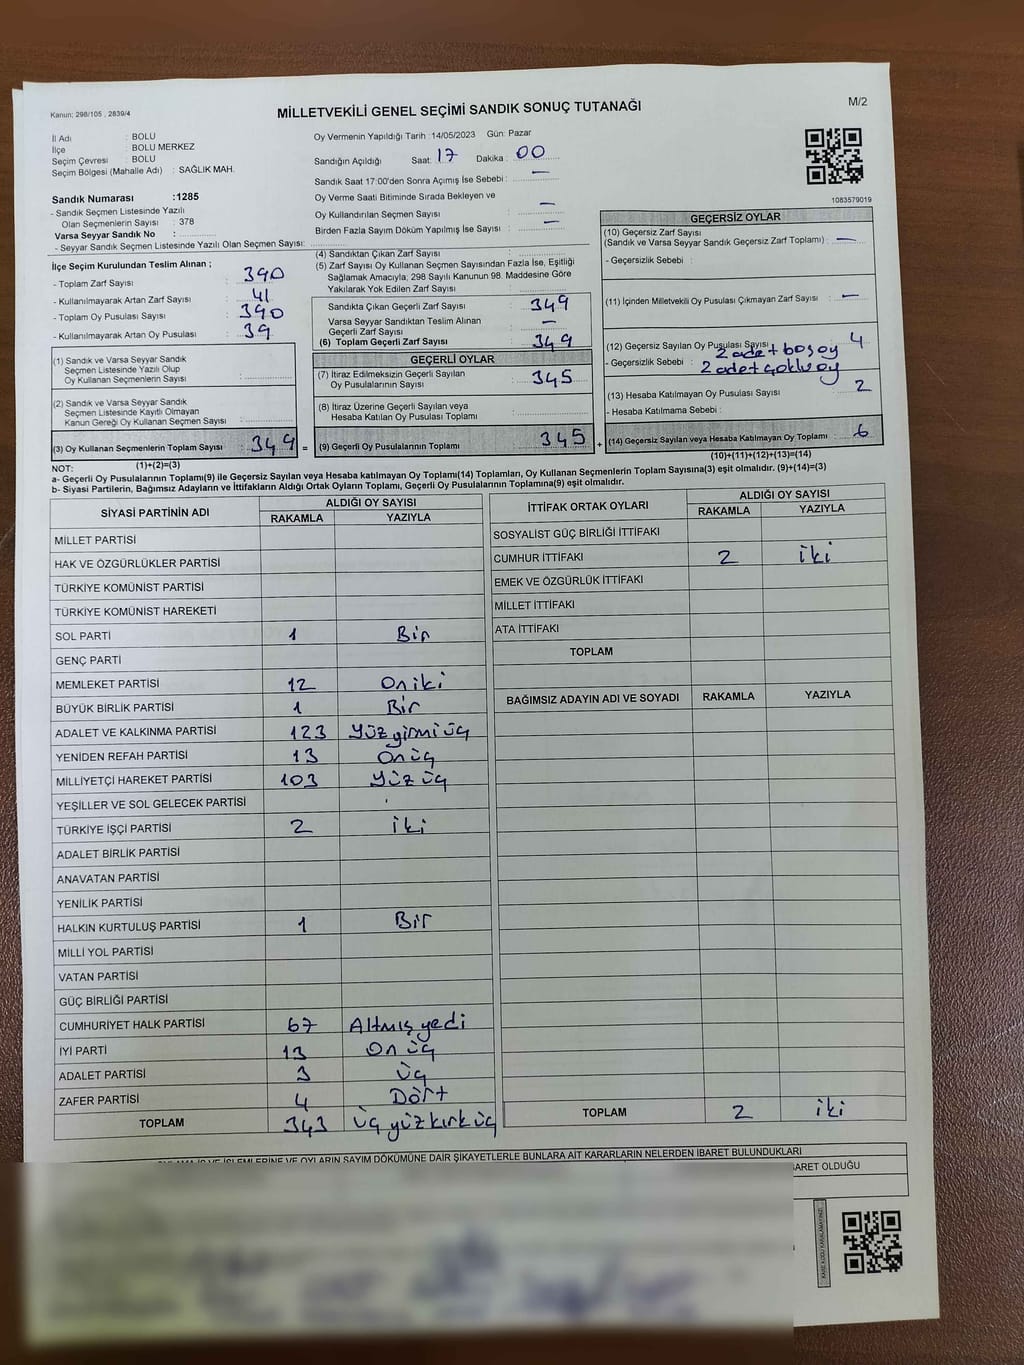 Kanun; 298/105 , 2839/4
MİLLETVEKİLİ GENEL SEÇİMİ SANDIK SONUÇ TUTANAĞI
M/2
İl Adı : BOLU
İlçe : BOLU MERKEZ
Seçim Çevresi : BOLU
Seçim Bölgesi (Mahalle Adı) : SAĞLIK MAH.
Sandık Numarası :1285
- Sandık Seçmen Listesinde Yazılı
Olan Seçmenlerin Sayısı : 378
Varsa Seyyar Sandık No :
- Seyyar Sandık Seçmen Listesinde Yazılı Olan Seçmen Sayısı:
Oy Vermenin Yapıldığı Tarih :14/05/2023 Gün: Pazar
Sandığın Açıldığı Saat: 17 Dakika : 00
Sandık Saat 17:00'den Sonra Açımış İse Sebebi : —
Oy Verme Saati Bitiminde Sırada Bekleyen ve
Oy Kullandırılan Seçmen Sayısı : —
Birden Fazla Sayım Döküm Yapılmış İse Sayısı : —
1083579019
İlçe Seçim Kurulundan Teslim Alınan ;
- Toplam Zarf Sayısı : 390
- Kullanılmayarak Artan Zarf Sayısı : 41
- Toplam Oy Pusulası Sayısı : 390
- Kullanılmayarak Artan Oy Pusulası : 39
(1) Sandık ve Varsa Seyyar Sandık
Seçmen Listesinde Yazılı Olup
Oy Kullanan Seçmenlerin Sayısı :
(2) Sandık ve Varsa Seyyar Sandık
Seçmen Listesinde Kayıtlı Olmayan
Kanun Gereği Oy Kullanan Seçmen Sayısı :
(3) Oy Kullanan Seçmenlerin Toplam Sayısı : 349
(4) Sandıktan Çıkan Zarf Sayısı :
(5) Zarf Sayısı Oy Kullanan Seçmen Sayısından Fazla İse, Eşitliği
Sağlamak Amacıyla; 298 Sayılı Kanunun 98. Maddesine Göre
Yakılarak Yok Edilen Zarf Sayısı :
Sandıkta Çıkan Geçerli Zarf Sayısı : 349
Varsa Seyyar Sandıktan Teslim Alınan
Geçerli Zarf Sayısı : —
(6) Toplam Geçerli Zarf Sayısı : 349
GEÇERLİ OYLAR
(7) İtiraz Edilmeksizin Geçerli Sayılan
Oy Pusulalarının Sayısı : 345
(8) İtiraz Üzerine Geçerli Sayılan veya
Hesaba Katılan Oy Pusulası Toplamı :
= (9) Geçerli Oy Pusulalarının Toplamı : 345
GEÇERSİZ OYLAR
(10) Geçersiz Zarf Sayısı
(Sandık ve Varsa Seyyar Sandık Geçersiz Zarf Toplamı) : —
- Geçersizlik Sebebi :
(11) İçinden Milletvekili Oy Pusulası Çıkmayan Zarf Sayısı : —
(12) Geçersiz Sayılan Oy Pusulası Sayısı : 4
- Geçersizlik Sebebi : 2 adet boş oy
2 adet çoklu oy
(13) Hesaba Katılmayan Oy Pusulası Sayısı : 2
- Hesaba Katılmama Sebebi :
+ (14) Geçersiz Sayılan veya Hesaba Katılmayan Oy Toplamı : 6
(1)+(2)=(3)
(10)+(11)+(12)+(13)=(14)
NOT:
a- Geçerli Oy Pusulalarının Toplamı(9) ile Geçersiz Sayılan veya Hesaba katılmayan Oy Toplamı(14) Toplamları, Oy Kullanan Seçmenlerin Toplam Sayısına(3) eşit olmalıdır. (9)+(14)=(3)
b- Siyasi Partilerin, Bağımsız Adayların ve İttifakların Aldığı Ortak Oyların Toplamı, Geçerli Oy Pusulalarının Toplamına(9) eşit olmalıdır.
SİYASİ PARTİNİN ADI ALDIĞI OY SAYISI
RAKAMLA YAZIYLA
MİLLET PARTİSİ
HAK VE ÖZGÜRLÜKLER PARTİSİ
TÜRKİYE KOMÜNİST PARTİSİ
TÜRKİYE KOMÜNİST HAREKETİ
SOL PARTİ 1 Bir
GENÇ PARTİ
MEMLEKET PARTİSİ 12 Oniki
BÜYÜK BİRLİK PARTİSİ 1 Bir
ADALET VE KALKINMA PARTİSİ 123 Yüz yirmi üç
YENİDEN REFAH PARTİSİ 13 Onüç
MİLLİYETÇİ HAREKET PARTİSİ 103 Yüz üç
YEŞİLLER VE SOL GELECEK PARTİSİ
TÜRKİYE İŞÇİ PARTİSİ 2 iki
ADALET BİRLİK PARTİSİ
ANAVATAN PARTİSİ
YENİLİK PARTİSİ
HALKIN KURTULUŞ PARTİSİ 1 Bir
MİLLİ YOL PARTİSİ
VATAN PARTİSİ
GÜÇ BİRLİĞİ PARTİSİ
CUMHURİYET HALK PARTİSİ 67 Altmış yedi
İYİ PARTİ 13 On üç
ADALET PARTİSİ 3 üç
ZAFER PARTİSİ 4 Dört
TOPLAM 343 üç yüz kırk üç
İTTİFAK ORTAK OYLARI ALDIĞI OY SAYISI
RAKAMLA YAZIYLA
SOSYALİST GÜÇ BİRLİĞİ İTTİFAKI
CUMHUR İTTİFAKI 2 iki
EMEK VE ÖZGÜRLÜK İTTİFAKI
MİLLET İTTİFAKI
ATA İTTİFAKI
TOPLAM
BAĞIMSIZ ADAYIN ADI VE SOYADI RAKAMLA YAZIYLA
TOPLAM 2 iki
OYLARIN SAYIM DÖKÜMÜNE DAİR ŞİKAYETLERLE BUNLARA AİT KARARLARIN NELERDEN İBARET BULUNDUKLARI
OLDUĞU